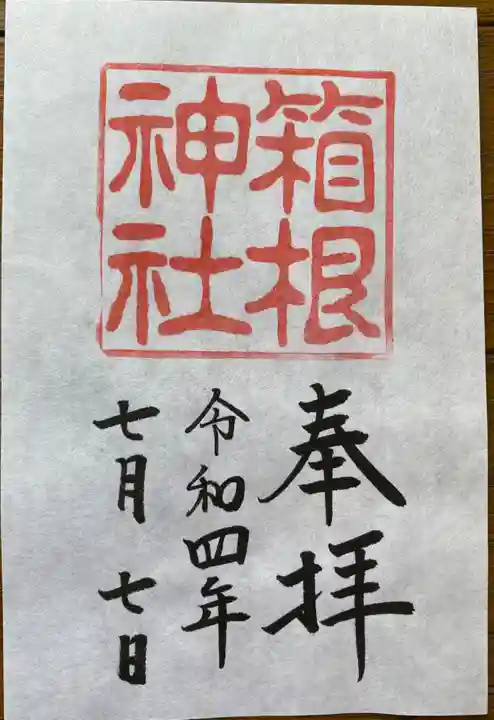 箱根
神社
奉拝
令和四年
七月 七日